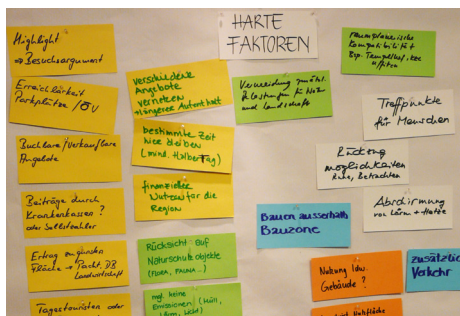 HARTE
FAKTOREN
Highlight
⇒ Besuchsargument
Erreichbarkeit
Parkplätze / ÖV
Buchbare/Verkaufbare
Angebote
Beiträge durch
Krankenkassen?
oder Selbstzahler
Fläche → Pacht, DB
Landwirtschaft
Tagestouristen oder
verschiedene
Angebote
vernetzen
längerer Aufenthalt
bestimmte Zeit
hier bleiben
(mind. Halber Tag)
finanzieller
Nutzen für die
Region
Rücksicht auf
Naturschutzobjekte
(FLORA, FAUNA...)
mgl. keine
Emissionen (Müll,
Lärm, Licht)
Vermeidung zusätzl.
Belastungen für Natur
und Landschaft
Bauen ausserhalb
Bauzone
raumplanerische
Kompatibilität
Bsp.
Treffpunkte
für Menschen
Rückzug
möglichkeiten
Ruhe, Betrachten
Abschirmung
von Lärm + Hektik
Nutzung ldw.
Gebäude?
zusätzlic
Verkehr